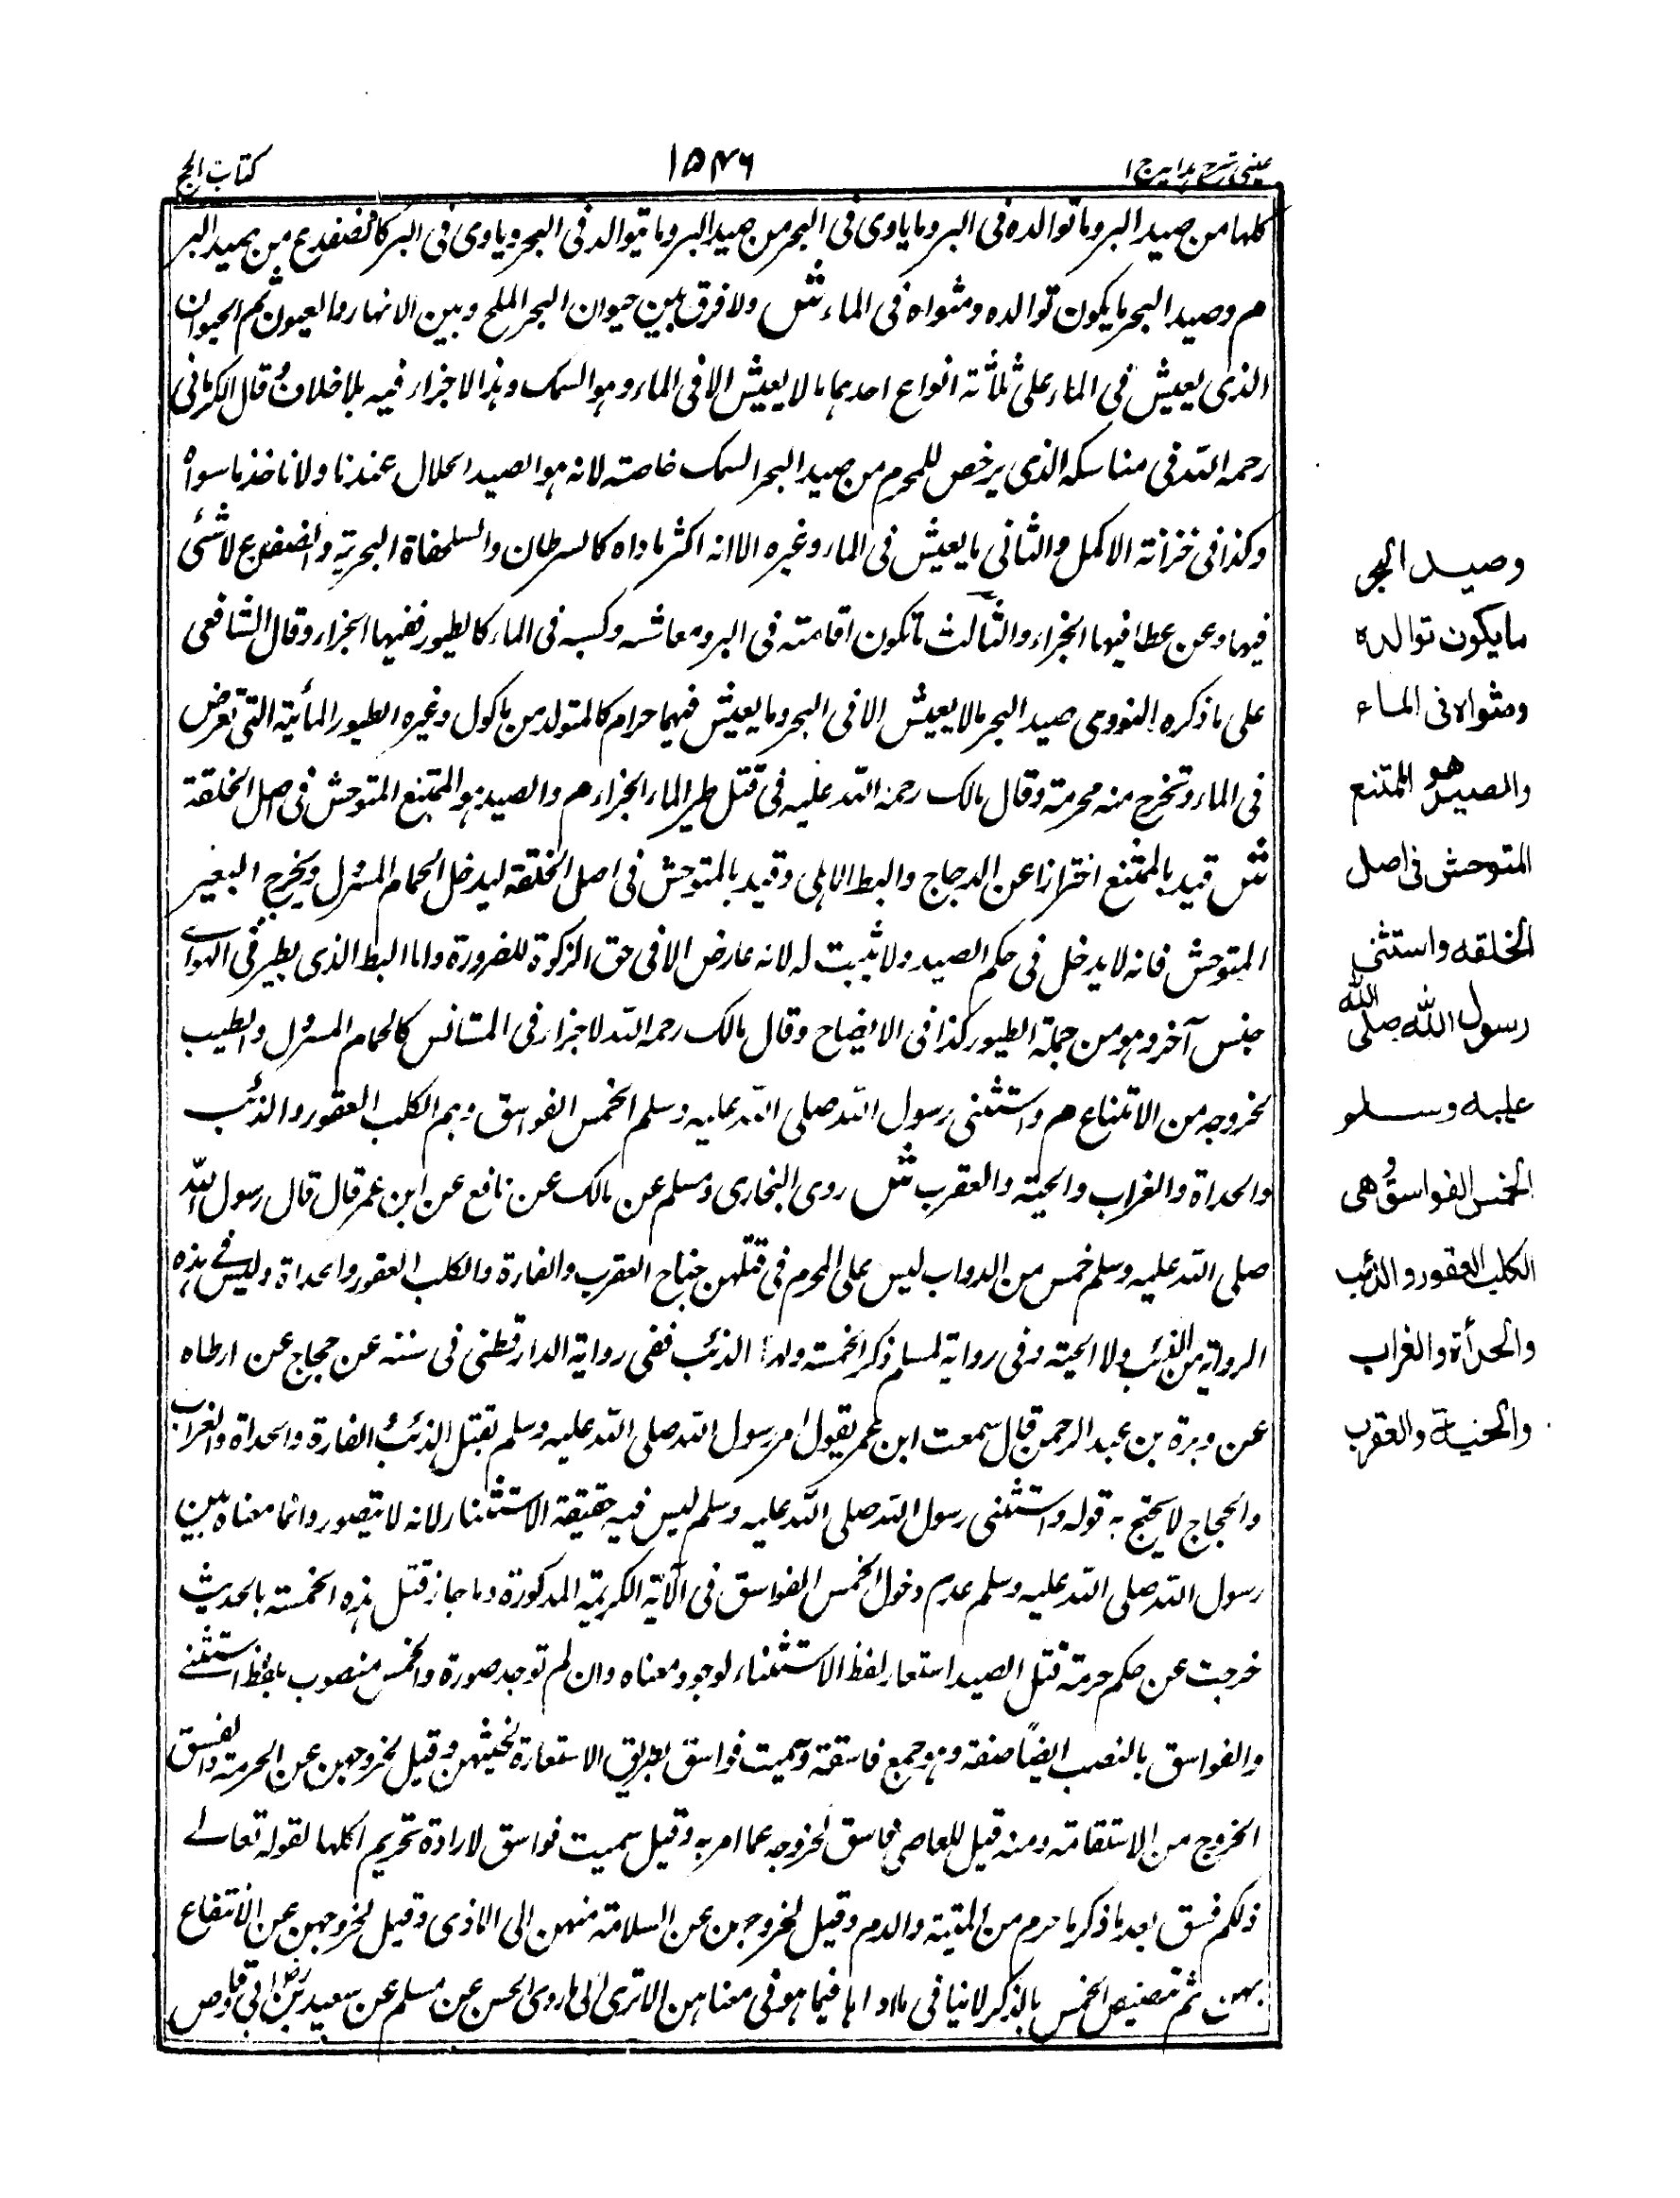 عینی شرح ہدایہ ج ۱
۱۵۴۶
کتاب الحج
کلہا من صید البر وما توالدہ فی البر وما یاوی فی البحر من صید البر وما یتوالد فی البحر ویاوی فی البر کالضفدع من صید البر
م وصید البحر ما یکون توالدہ ومثواہ فی الماء ش ولا فرق بین حیوان البحر الملح وبین الانہار والعیون ثم الحیوان
الذی یعیش فی الماء علی ثلاثة انواع احدہما ما لا یعیش الا فی الماء وہو السمک وہذا لا جزاء فیہ بلا خلاف وقال الکرمانی
رحمہ اللہ فی مناسکہ الذی یرخص للمحرم من صید البحر السمک خاصة لانہ ہو الصید الحلال عندنا ولا ناخذ ما سواہ
وکذا فی خزانة الاکمل والثانی ما یعیش فی الماء وغیرہ الا انہ اکثر ماواہ کالسرطان والسلحفاة البحریة والضفدع لا شئ
فیہا وعن عطا فیہا الجزاء والثالث ما تکون اقامتہ فی البر ومعاشہ وکسبہ فی الماء کالطیور ففیہا الجزاء وقال الشافعی
علی ما ذکرہ النووی صید البحر ما لا یعیش الا فی البحر وما یعیش فیہما حرام کالمتولد من ماکول وغیرہ الطیور المائیة التی تعرض
فی الماء وتخرج منہ محرمة وقال مالک رحمة اللہ علیہ فی قتل طیر الماء الجزاء م والصید ہو الممتنع المتوحش فی اصل الخلقة
ش قید بالممتنع احترازا عن الدجاج والبط الاہلی وقید بالمتوحش فی اصل الخلقة لیدخل الحمام المسرول ویخرج البعیر
المتوحش فانہ لا یدخل فی حکم الصید ولا یثبت لہ لانہ عارض الا فی حق الزکوة للضرورة واما البط الذی یطیر فی الہواء
جنس آخر وہو من جملة الطیور کذا فی الایضاح وقال مالک رحمہ اللہ لا جزاء فی المستانس کالحمام المسرول والطیب
لخروجہ من الامتناع م واستثنی رسول اللہ صلی اللہ علیہ وسلم الخمس الفواسق وہم الکلب العقور والذئب
والحداة والغراب والحیة والعقرب ش روی البخاری ومسلم عن مالک عن نافع عن ابن عمر قال قال رسول اللہ
صلی اللہ علیہ وسلم خمس من الدواب لیس علی المحرم فی قتلہن جناح العقرب والفارة والکلب العقور والحداة ولیس فی ہذہ
الروایة من الذئب ولا الحیة وفی روایة لمسلم ذکر الخمسة ولہذا الذئب ففی روایة الدارقطنی فی سننہ عن حجاج عن ارطاہ
عن وبرة بن عبد الرحمن قال سمعت ابن عمر یقول امر رسول اللہ صلی اللہ علیہ وسلم بقتل الذئب والفارة والحداة والغراب
والحجاج لا یحتج بہ قولہ واستثنی رسول اللہ صلی اللہ علیہ وسلم لیس فیہ حقیقة الاستثناء لانہ لا یتصور وانما معناہ بین
رسول اللہ صلی اللہ علیہ وسلم عدم دخول الخمس الفواسق فی الآیة الکریمة المذکورة وما جاز قتل ہذہ الخمسة بالحدیث
خرجت عن حکم حرمة قتل الصید استعار لفظ الاستثناء لوجود معناہ وان لم توجد صورة والخمس منصوب بلفظ استثنی
والفواسق بالنصب ایضاً صفة وہو جمع فاسقة وسمیت فواسق بطریق الاستعارة لخبثہن وقیل لخروجہن عن الحرمة والفسق
الخروج من الاستقامة ومنہ قیل للعاصی فاسق لخروجہ عما امر بہ وقیل سمیت فواسق لارادة تحریم اکلہا لقولہ تعالے
ذلکم فسق بعد ما ذکر ما حرم من المیتة والدم وقیل لخروجہن عن السلامة منہن الی الاذی وقیل لخروجہن عن الانتفاع
بہن ثم تخصیص الخمس بالذکر لا ینافی ما فیما ہو فی معناہن الا تری الی ما روی الحسن عن مسلم عن سعید بن ابی وقاص
وصید البحر
مایکون توالدہ
ومثواہ فی الماء
والصید هو الممتنع
المتوحش فی اصل
الخلقه واستثنی
رسول اللہ صلی اللہ
علیہ وسلم
الخمس الفواسق وهی
الکلب العقور والذئب
والحدأة والغراب
والحیة والعقرب